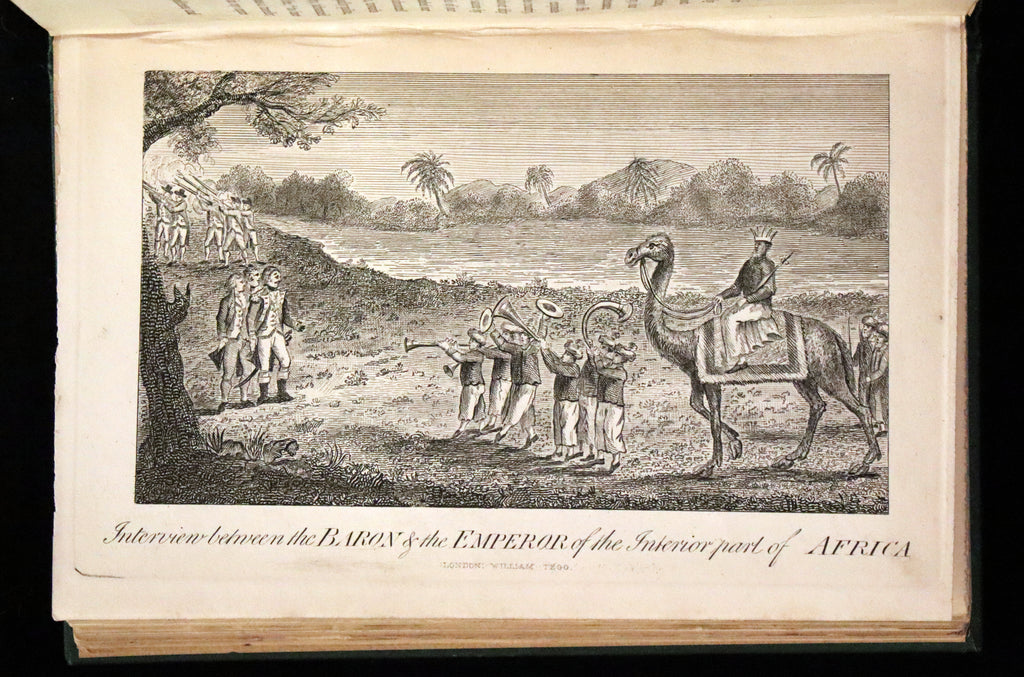 Interview between the BARON & the EMPEROR of the Interior part of AFRICA
LONDON: WILLIAM TEGG.